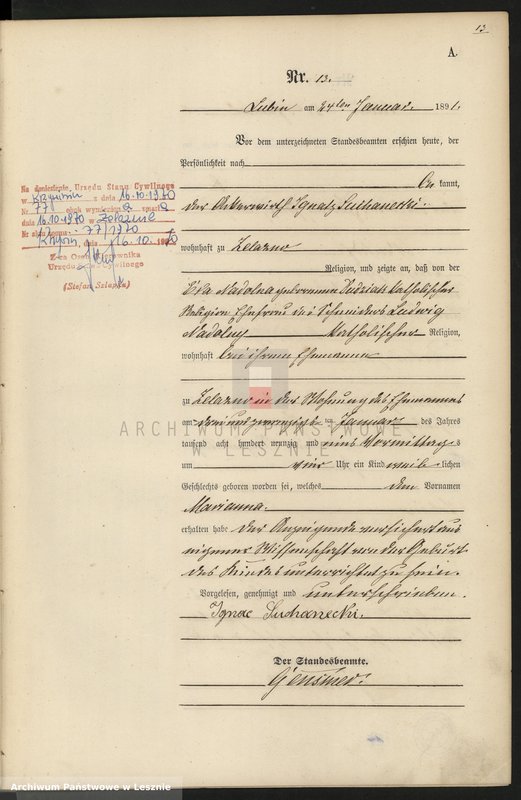 13
A.
Nr. 13.
Lubin am 24ten Januar 1891.
Vor dem unterzeichneten Standesbeamten erschien heute, der
Persönlichkeit nach
be kannt,
der Ackerwirth Ignatz Suchanecki.
wohnhaft zu Zelazno
Religion, und zeigte an, daß von der
Eva Nadolna geborenen katholischer
Religion Ehefrau des Schneiders Ludwig
Nadolny katholischer Religion,
wohnhaft bei ihrem Ehemanne
zu Zelazno in der Wohnung des Ehemannes
am drei und zwanzigsten Januar des Jahres
tausend acht hundert neunzig und eins Vormittags
um vier Uhr ein Kind weib lichen
Geschlechts geboren worden sei, welches den Vornamen
Marianna.
erhalten habe der Anzeigende versichert aus
eigener Wissenschaft von der Geburt
des Kindes unterrichtet zu sein.
Vorgelesen, genehmigt und unterschrieben.
Ignac Suchanecki.
Der Standesbeamte.
Na doniesienie, Urzędu Stanu Cywilnego
w Krzywiń z dnia 16.10.1970
Nr 77
dnia 16.10.1970 w Żelaźnie
Nr aktu zgonu 77/1970
Krzywiń, dnia 16.10.1970
Z-ca Kierownika
Urzędu Stanu Cywilnego
(Stefan Szlapka)
ARCHIWUM PAŃSTWOWE
W LESZNIE
Archiwum Państwowe w Lesznie